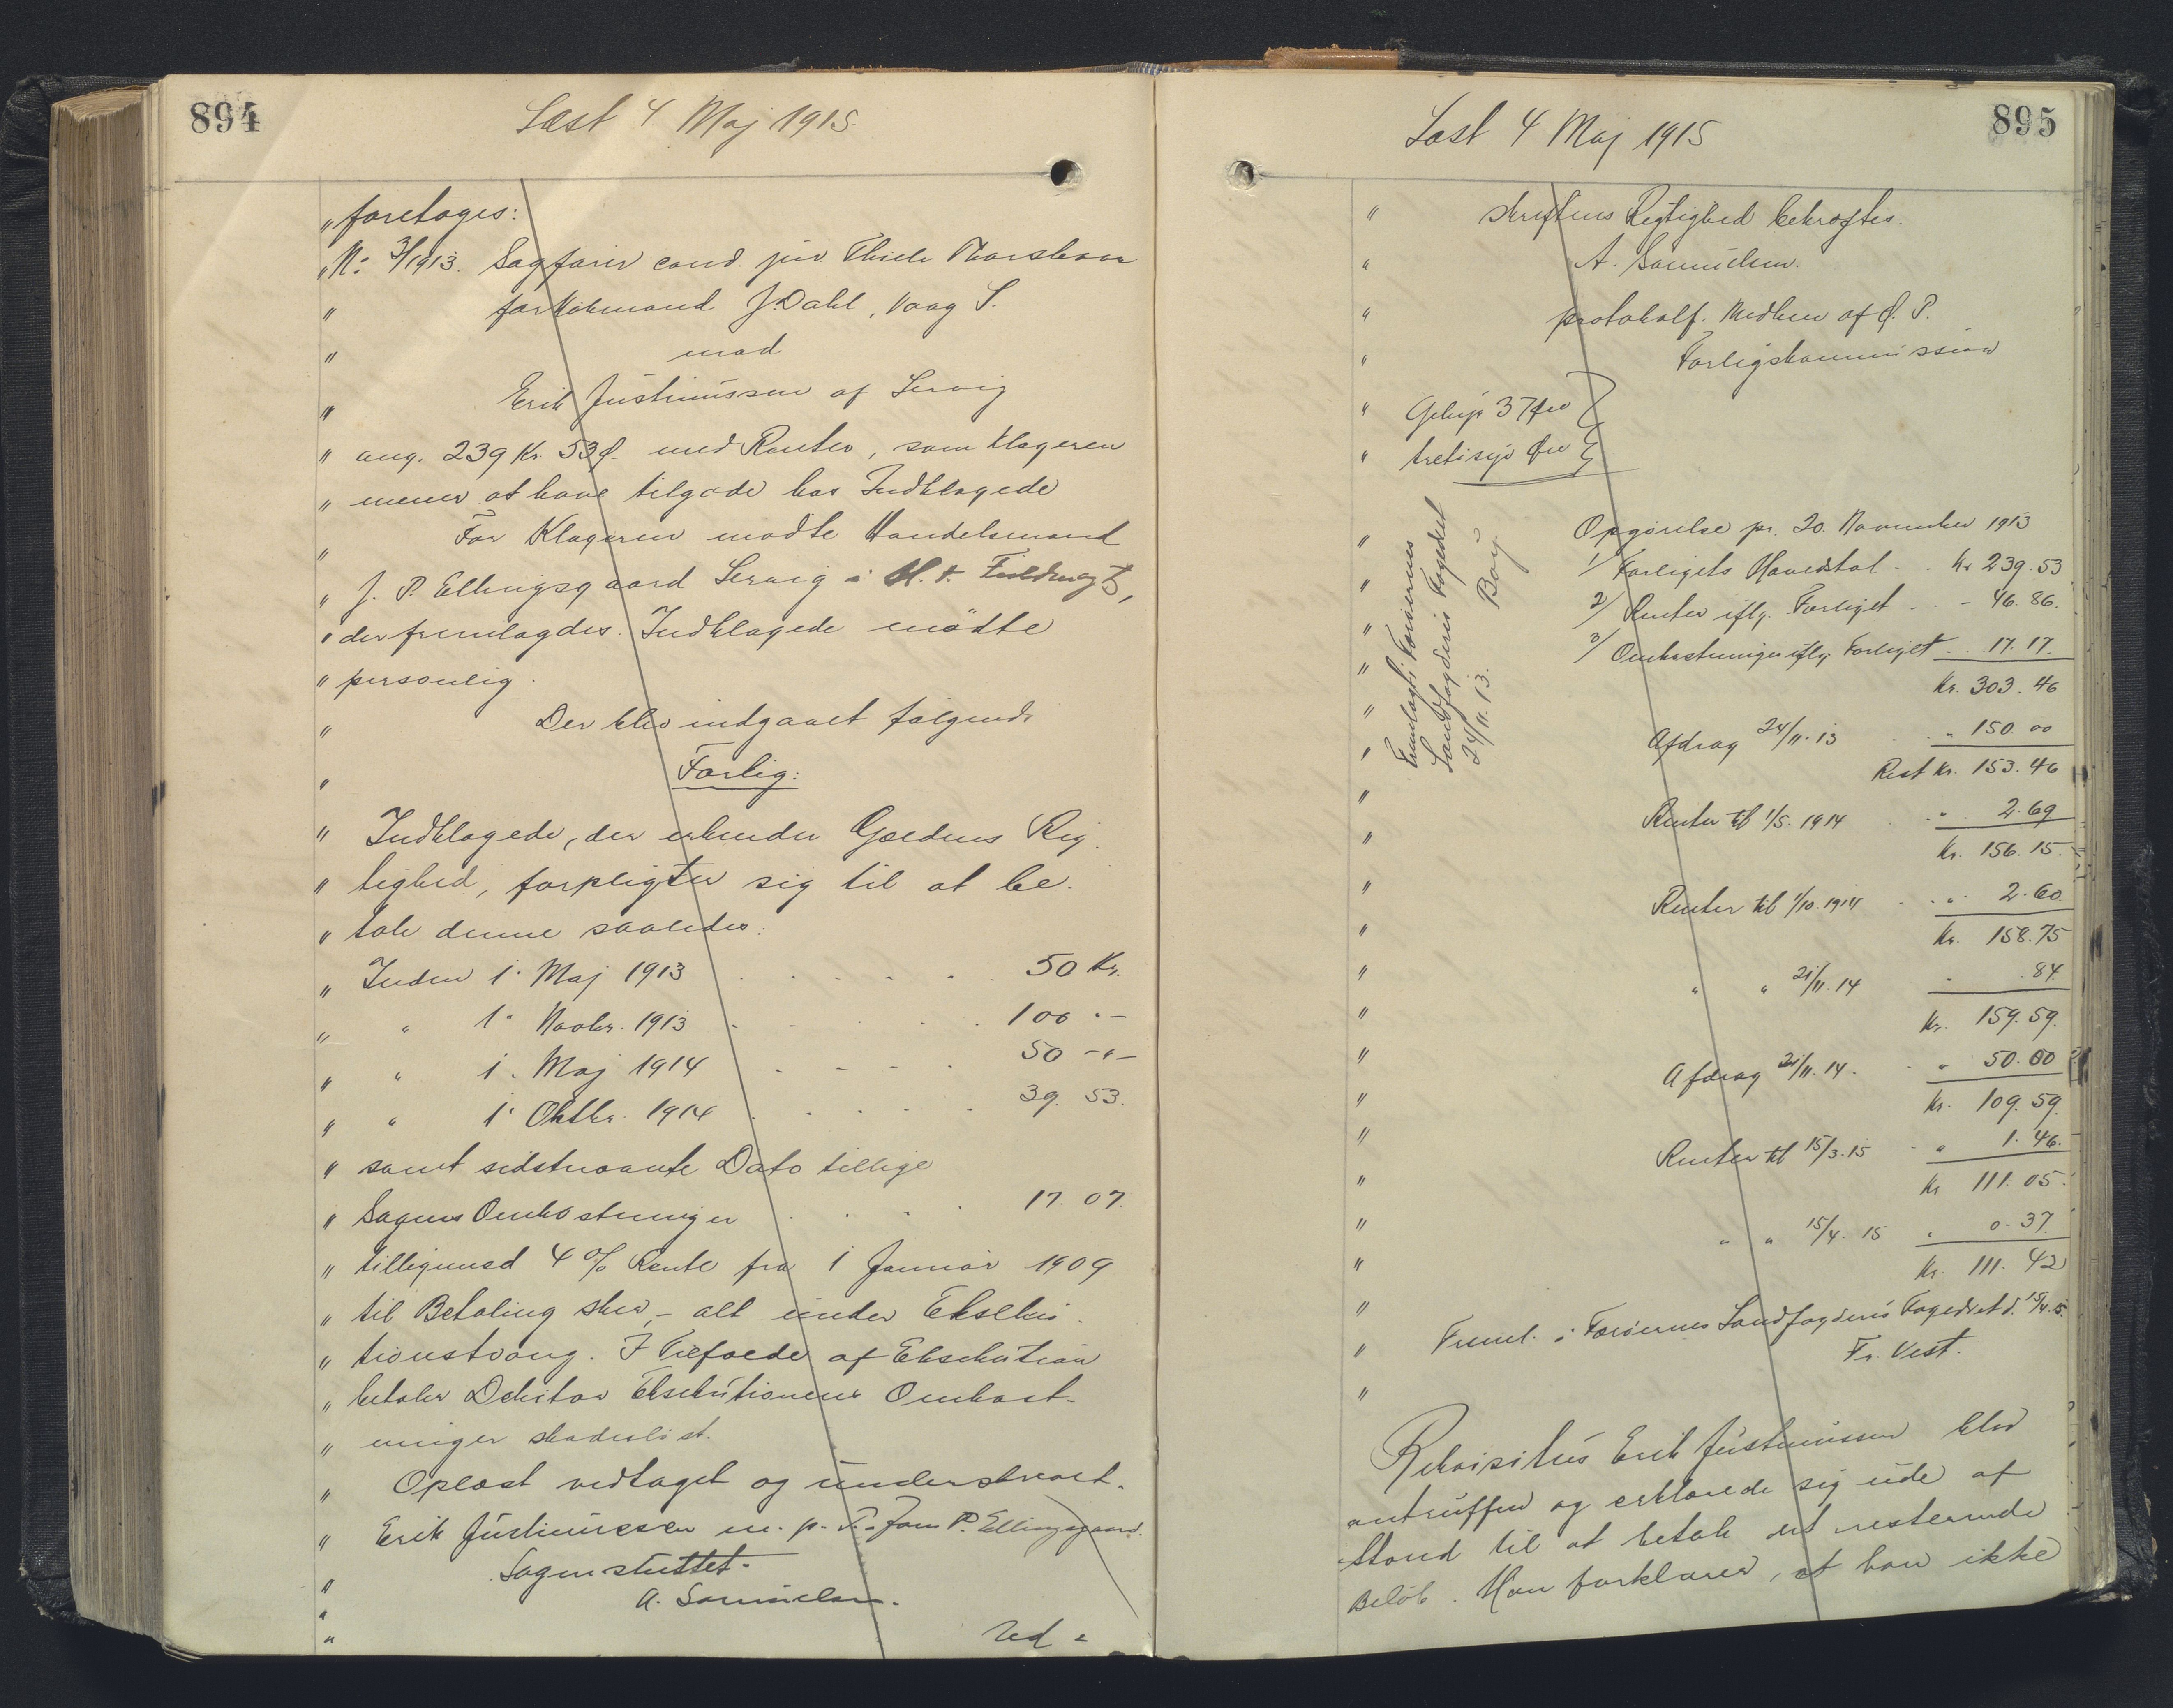 894
Læst 4 Maj 1915.
" foretoges:
" No 3/1913. Sagfører cand. jur. Thiele Thorshavn
" for Købmand J. Dahl, Vaag S.
" mod
" Erik Justinussen af Lervig
" ang. 239 Kr. 53 Ø. med Renter, som Klageren
" mener at have tilgode hos Indklagede
" For Klageren mødte Handelsmand
" J. P. Ellingsgaard Lervig i H. t. Fuldmagt,
" der fremlagdes. Indklagede mødte
" personlig.
" Der blev indgaaet følgende
" Forlig:
" Indklagede, der erkender Gældens Rig-
" tighed, forpligter sig til at be-
" tale denne saaledes:
" Inden 1. Maj 1913 . . . . . 50 Kr.
" " 1. Novbr. 1913 . . . . . 100 "-
" " 1. Maj 1914 - - - . 50 -"-
" " 1. Oktbr. 1914 . . . . . 39. 53.
" samt sidstnævnte Dato tillige
" Sagens Omkostninger . . . . 17. 07.
" tilligemed 4 % Rente fra 1 Januar 1909
" til Betaling sker, - alt under Ekseku-
" tionstvang. I Tilfælde af Eksekution
" betaler Debitor Eksekutionens Omkost-
" ninger skadesløst.
" Oplæst vedtaget og underskrevet.
" Erik Justinussen m. p. P. Joen P. Ellingsgaard.
" Sagen sluttet.
" A. Samuelsen.
" Ud-
895
Læst 4 Maj 1915
" skriftens Rigtighed bekræftes.
" A. Samuelsen.
" protokolf. Medlem af Ø. P.
" Forligskommission
" Gebyr 37 Øre
" tretisyv Øre
Fremlagt i Færøernes
Landfogderis Fogedret
24/11. 13. Böy.
" Opgørelse pr. 20. November 1913
" 1/ Forligets Hovedstol - . Kr 239. 53
" 2/ Renter iflg. Forliget . . - 46. 86.
" 3/ Omkostninger iflg Forliget - . . 17. 17.
" Kr. 303. 46
" Afdrag 24/11. 13 . . " 150. 00
Rest Kr. 153. 46
" Renter til 1/5. 1914 . . " . 2. 69
" Kr. 156. 15.
" Renter til 1/10. 1914 . . " . 2. 60.
" Kr. 158. 75
" " " 21/11. 14 " . 84
" Kr. 159. 59.
" Afdrag 21/11. 14. . " 50. 00
" Kr. 109. 59.
" Renter til 15/3. 15 . " 1. 46.
" Kr 111. 05.
" " " 15/4. 15 " 0. 37.
" Kr. 111. 42
" Freml. i Færøernes Landfogderis Fogedret d. 15/4. 15.
" Fr. Vest.
Rekvisitus Erik Justinussen blev
antruffen og erklærede sig ude af
Stand til at betale det resterende
Beløb. Han forklarer, at han ikke